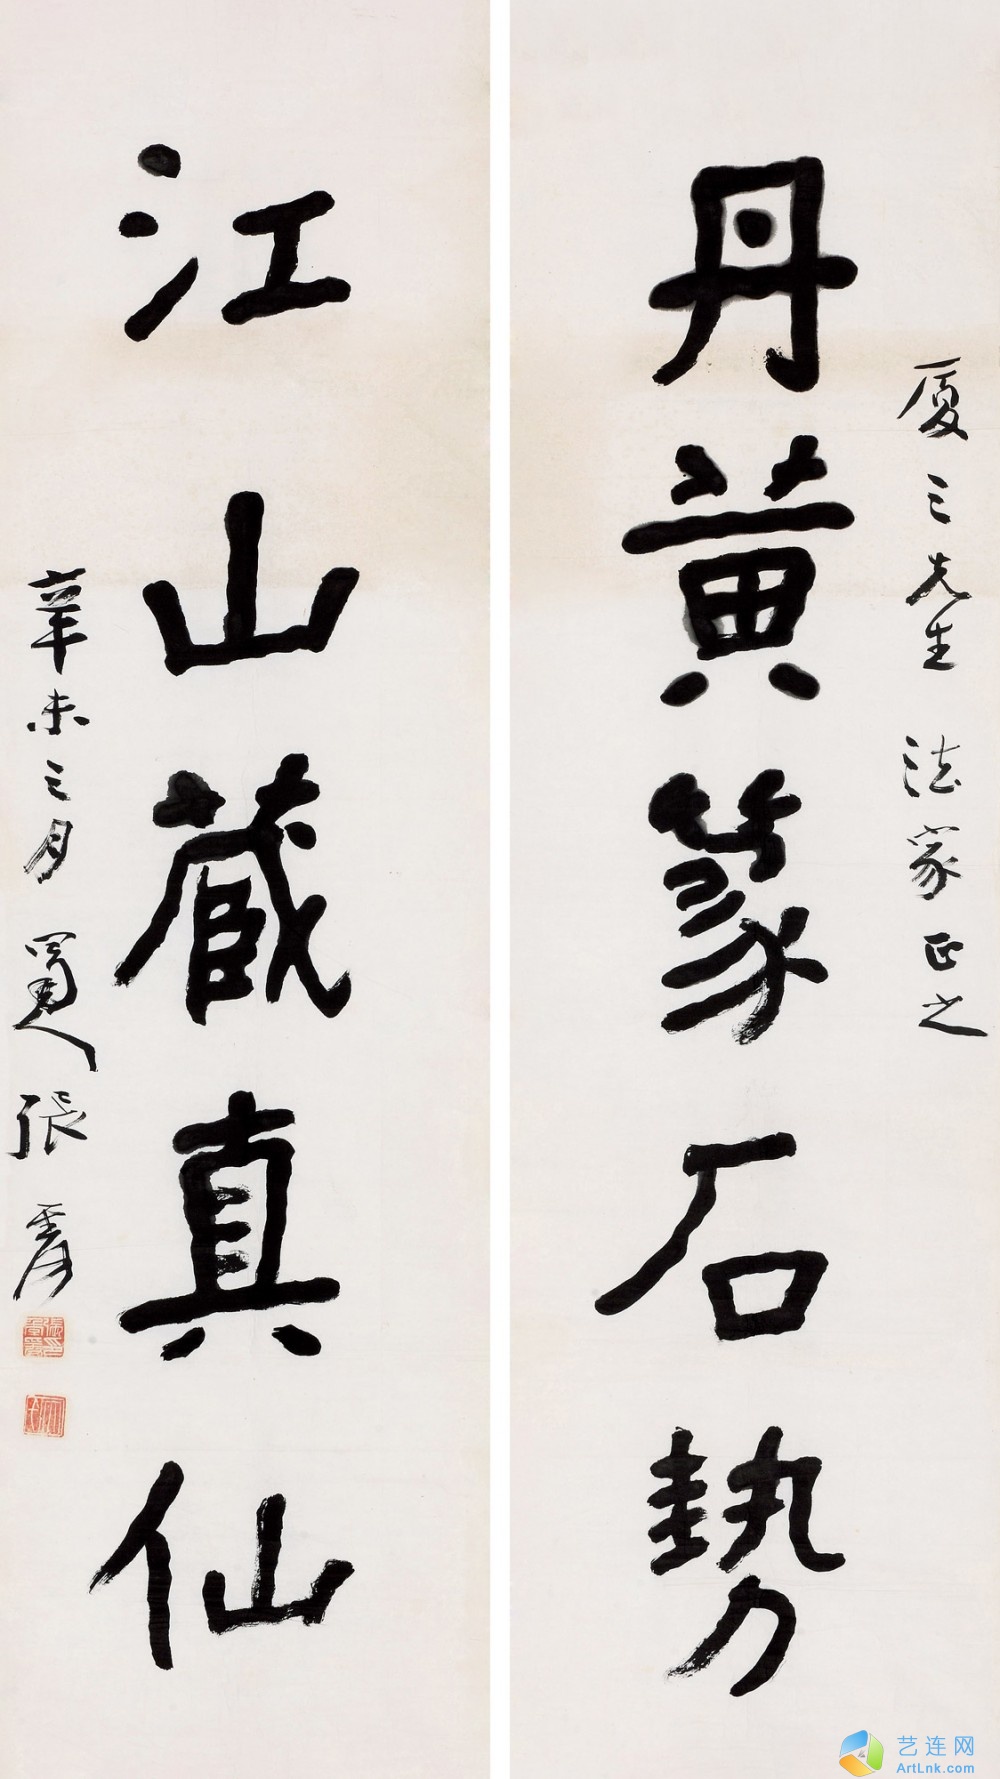 厦三先生 法家正之
丹黄篆石勢
江山藏真仙
辛未三月 蜀人張爰
艺连网
ArtLnk.com